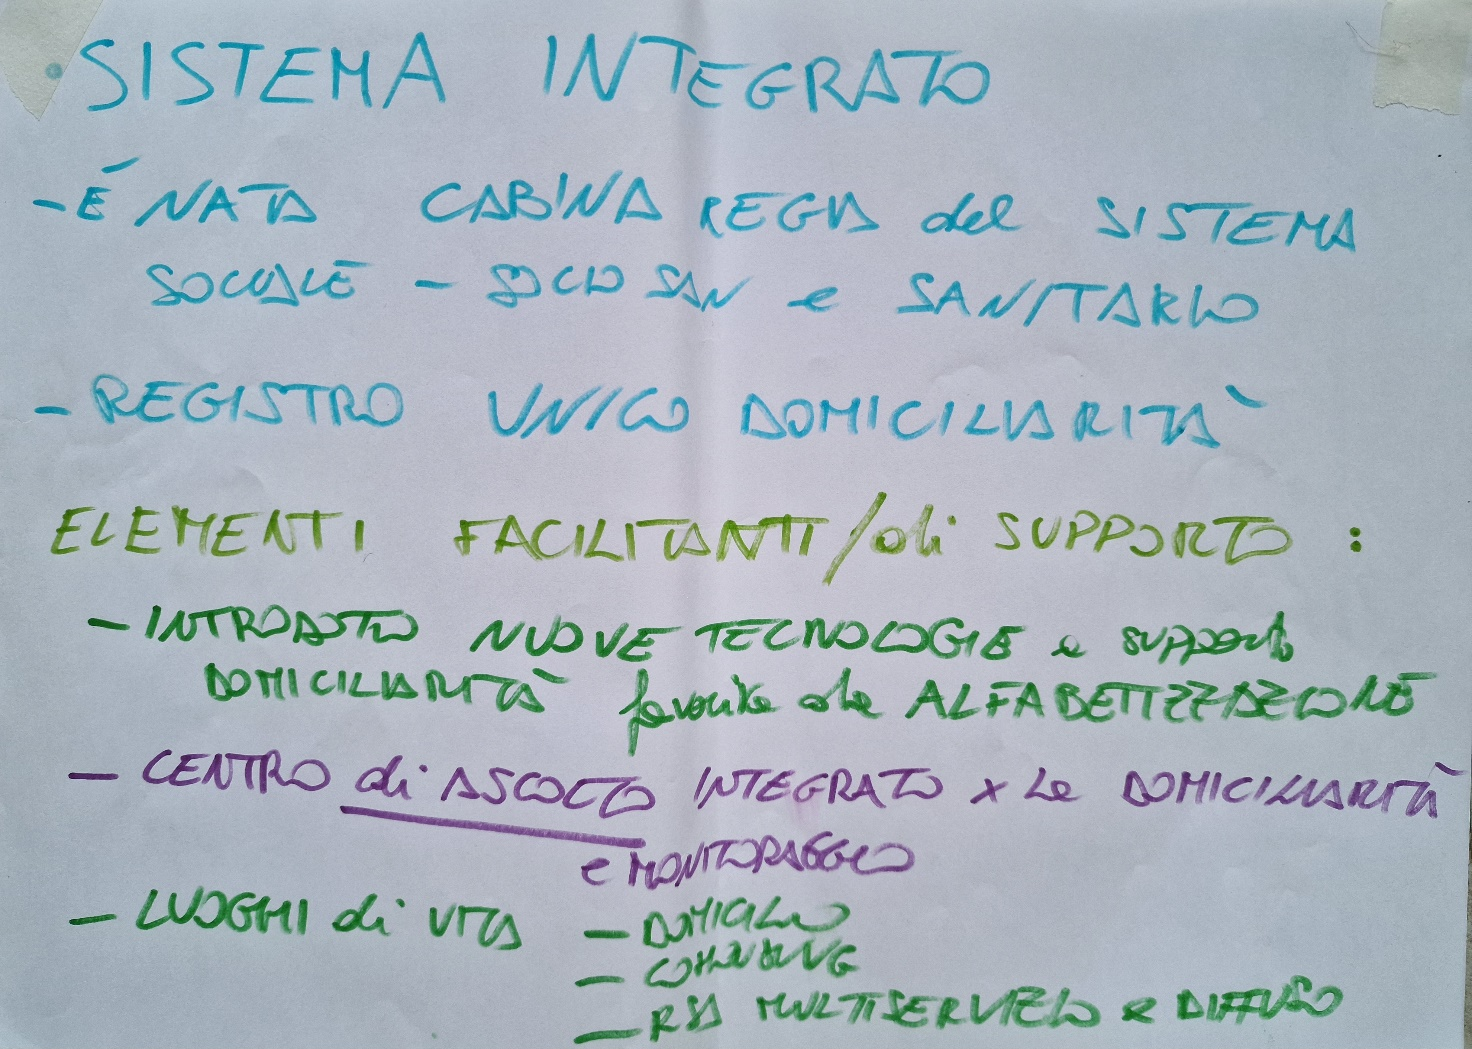 • SISTEMA INTEGRATO
- É NATA CABINA REGIA del SISTEMA
SOCIALE - SOCIO SAN e SANITARIO
- REGISTRO UNICO DOMICILIARITÀ
ELEMENTI FACILITANTI/di SUPPORTO :
- INTRODOTTO NUOVE TECNOLOGIE a supporto
DOMICILIARITÀ favorite da ALFABETIZZAZIONE
- CENTRO di ASCOLTO INTEGRATO x la DOMICILIARITÀ
e MONITORAGGIO
- LUOGHI di VITA - DOMICILIO
- COHOUSING
- RSA MULTISERVIZIO e DIFFUSO